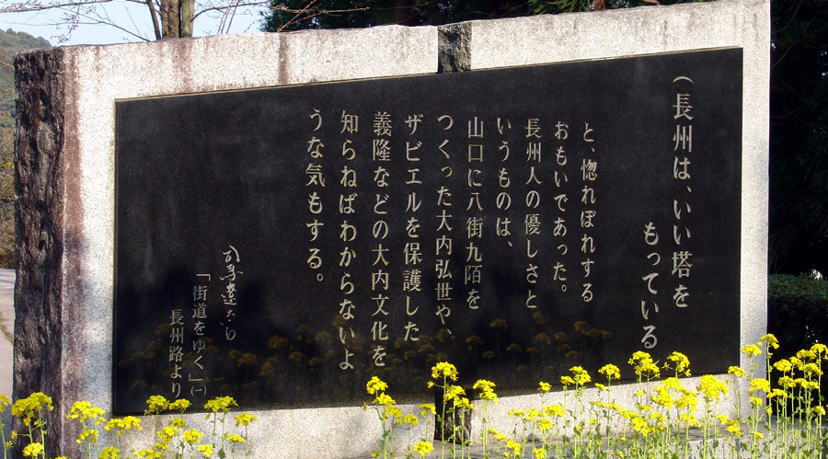 (長州は、いい塔を
もっている
と、惚れぼれする
おもいであった。
長州人の優しさと
いうものは、
山口に八街九陌を
つくった大内弘世や、
ザビエルを保護した
義隆などの大内文化を
知らねばわからないよ
うな気もする。
司馬遼太郎
「街道をゆく」(一)
長州路より